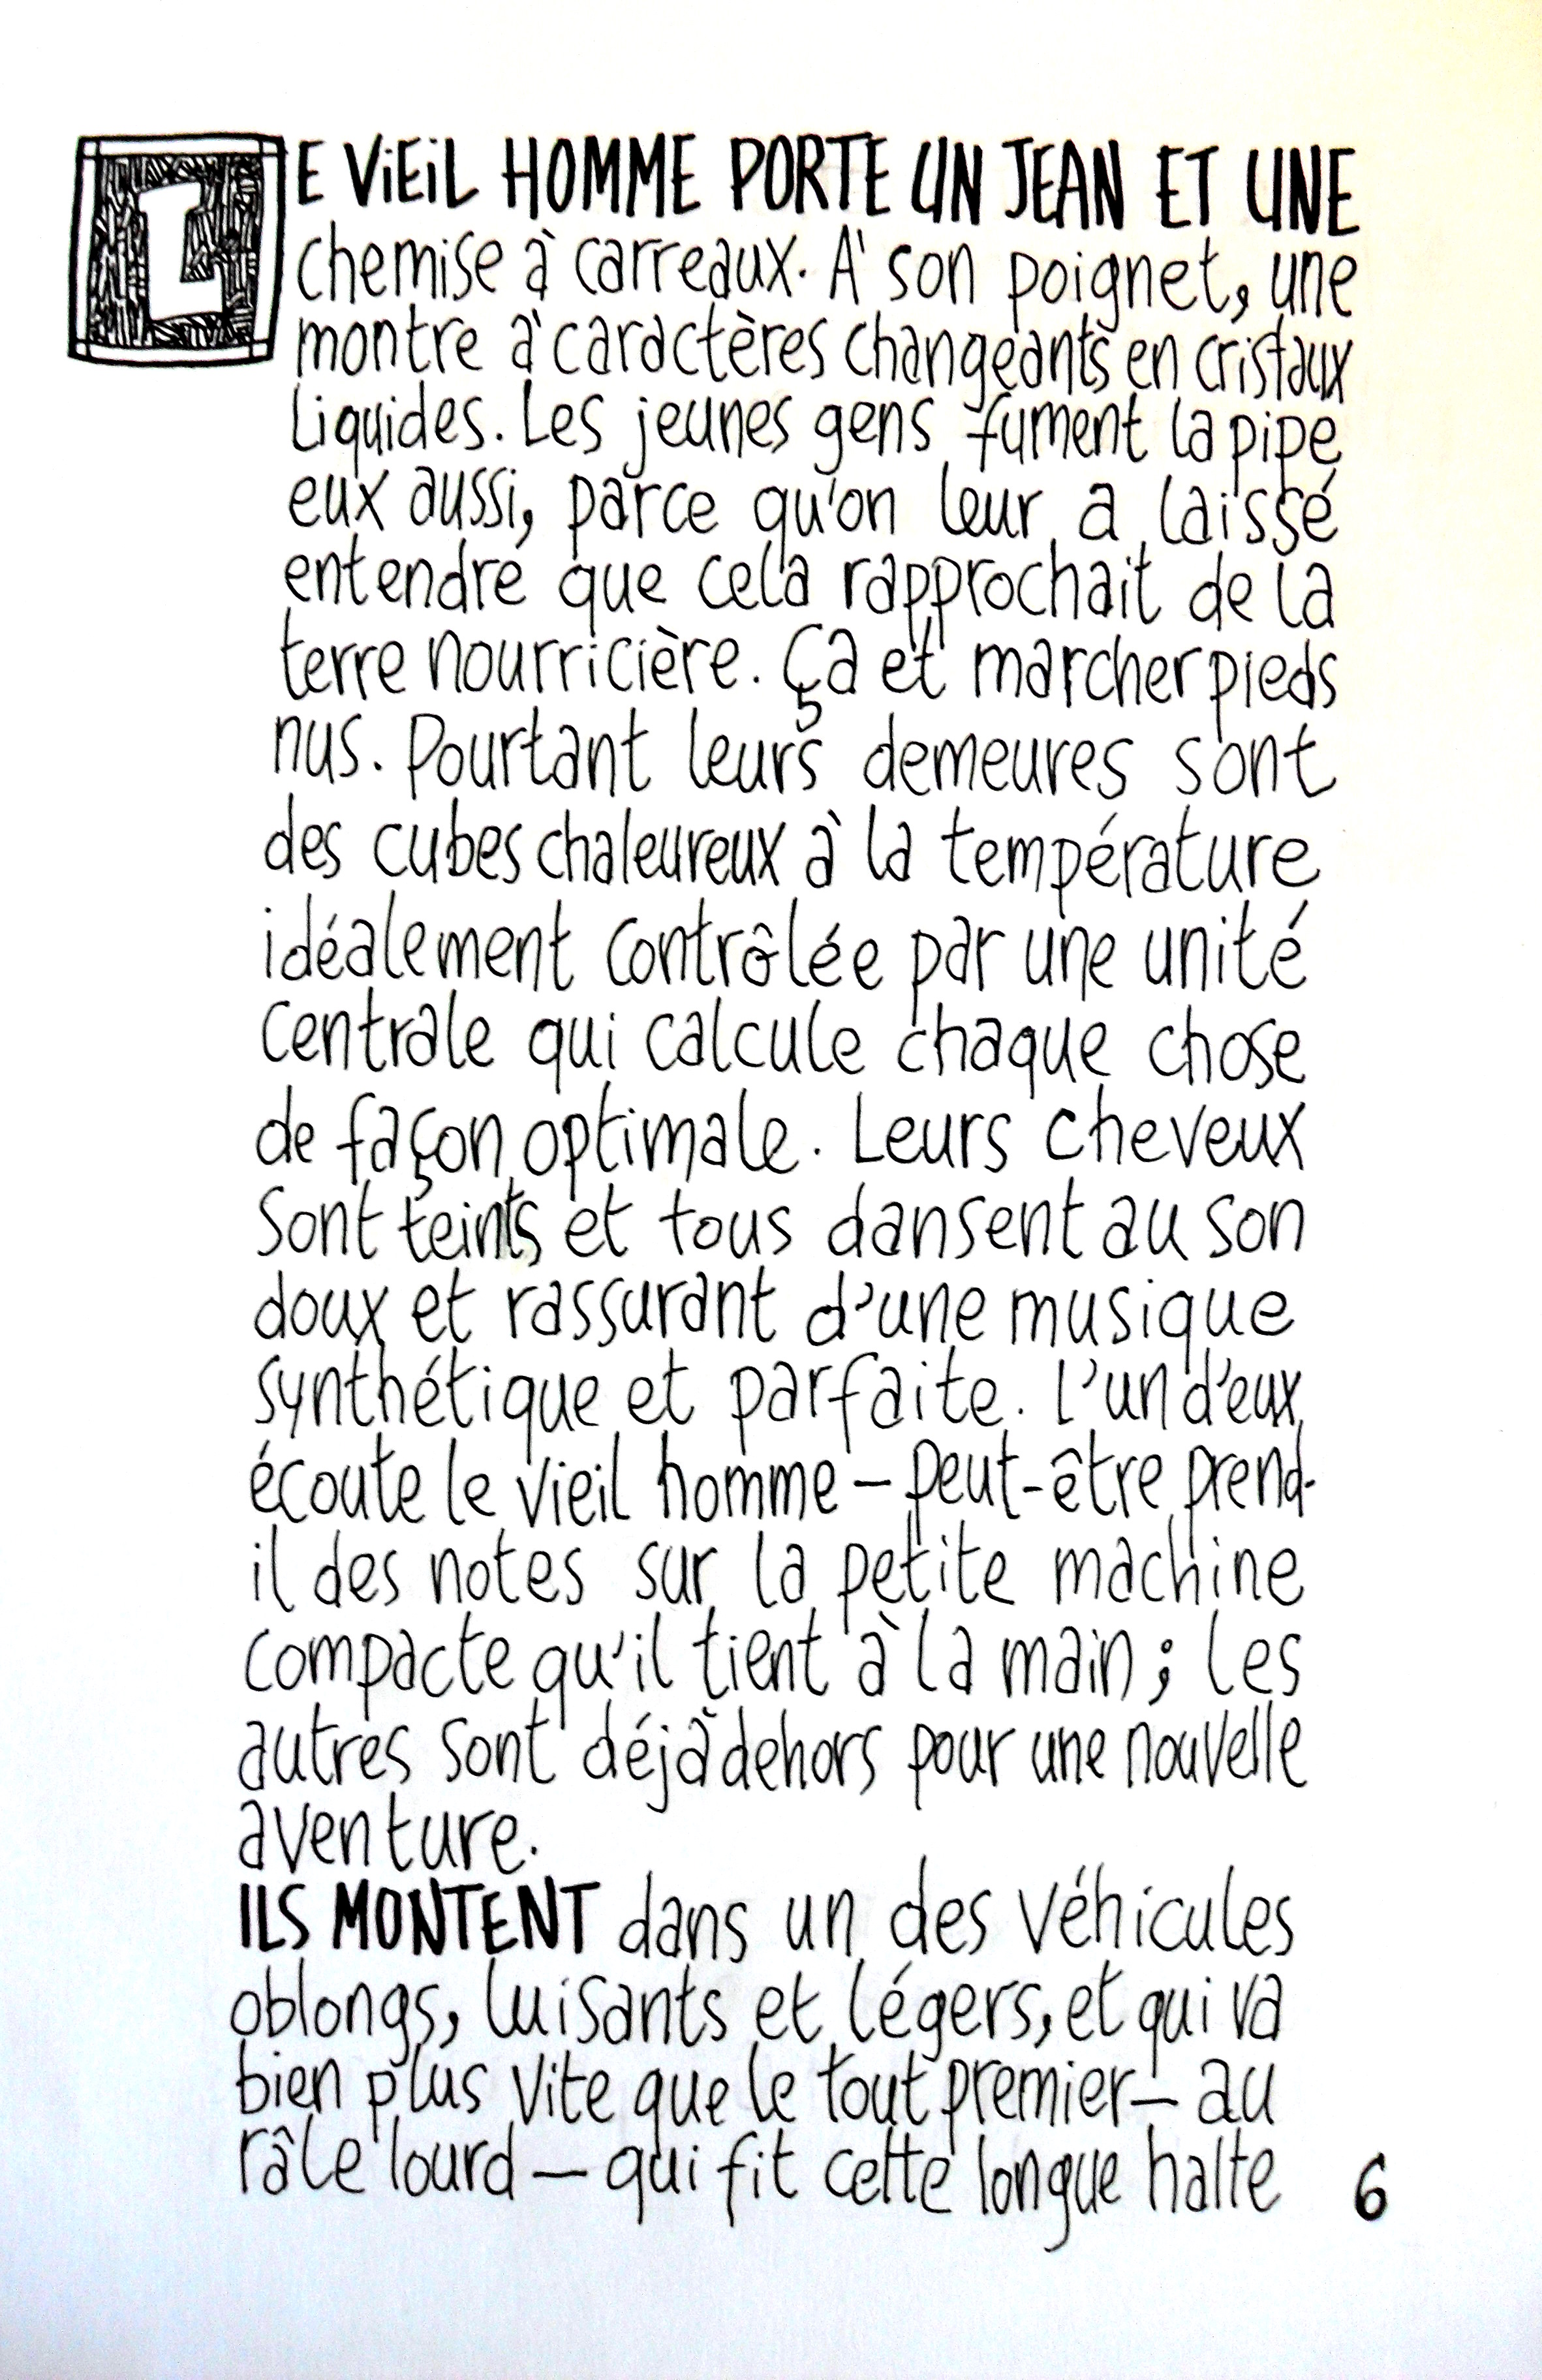 LE VIEIL HOMME PORTE UN JEAN ET UNE
chemise à carreaux. À son poignet, une
montre à caractères changeants en cristaux
liquides. Les jeunes gens fument la pipe
eux aussi, parce qu'on leur a laissé
entendre que cela rapprochait de la
terre nourricière. Ça et marcher pieds
nus. Pourtant leurs demeures sont
des cubes chaleureux à la température
idéalement contrôlée par une unité
centrale qui calcule chaque chose
de façon optimale. Leurs cheveux
sont teints et tous dansent au son
doux et rassurant d'une musique
synthétique et parfaite. L'un d'eux
écoute le vieil homme – peut-être prend-
il des notes sur la petite machine
compacte qu'il tient à la main ; les
autres sont déjà dehors pour une nouvelle
aventure.
ILS MONTENT dans un des véhicules
oblongs, luisants et légers, et qui va
bien plus vite que le tout premier – au
râle lourd – qui fit cette longue halte
6